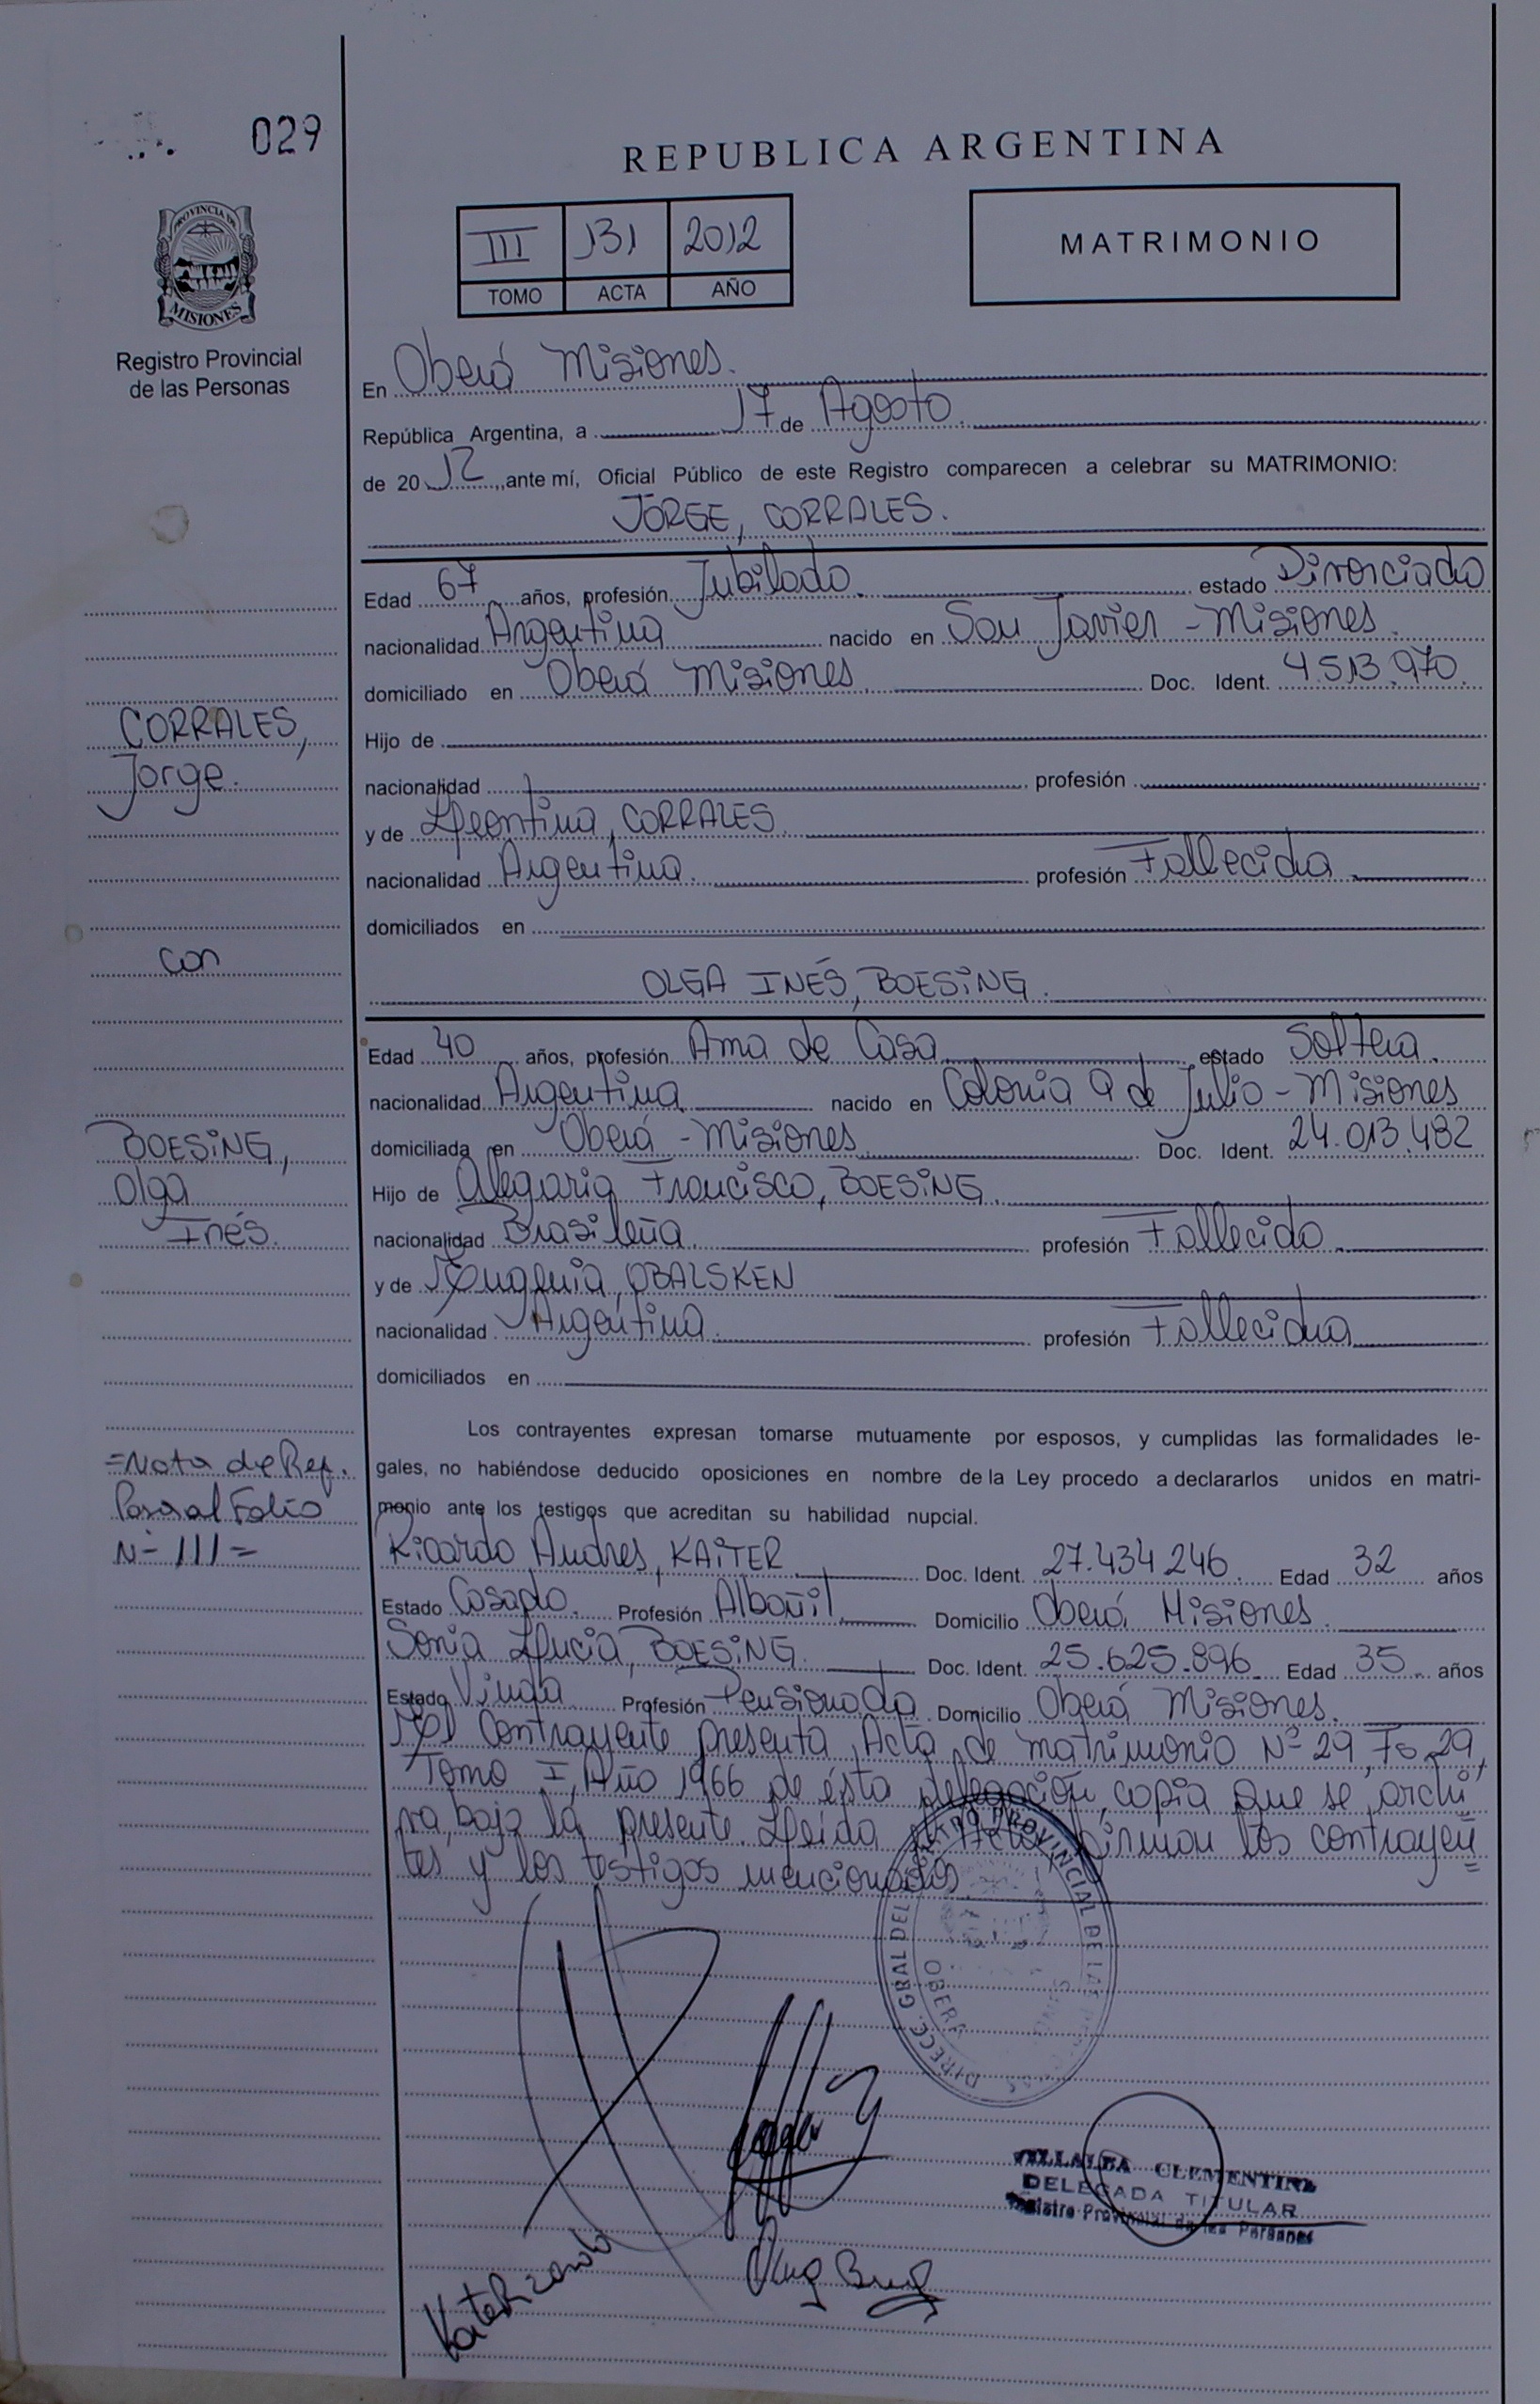 029
REPUBLICA ARGENTINA
III 131 2012
TOMO ACTA AÑO
MATRIMONIO
PROVINCIA DE
MISIONES
Registro Provincial
de las Personas
En Oberá Misiones.
República Argentina, a 17 de Agosto
de 2012, ante mí, Oficial Público de este Registro comparecen a celebrar su MATRIMONIO:
JORGE, CORRALES.
Edad 67 años, profesión Jubilado. estado Divorciado
nacionalidad Argentina nacido en San Javier - Misiones.
domiciliado en Oberá Misiones. Doc. Ident. 4.513.970.
Hijo de
nacionalidad profesión
y de Leontina, CORRALES
nacionalidad Argentina. profesión Fallecida
domiciliados en
CORRALES,
Jorge.
con
OLGA INÉS, BOESING.
Edad 40 años, profesión Ama de Casa estado Soltera.
nacionalidad Argentina nacido en Colonia 9 de Julio - Misiones
domiciliada en Oberá - Misiones Doc. Ident. 24.013.482
Hijo de Olegario Francisco, BOESING.
nacionalidad Brasileña profesión Fallecido
y de Eugenia, OBALSKEN
nacionalidad Argentina. profesión Fallecida
domiciliados en
BOESING,
Olga
Inés.
Los contrayentes expresan tomarse mutuamente por esposos, y cumplidas las formalidades le-
gales, no habiéndose deducido oposiciones en nombre de la Ley procedo a declararlos unidos en matri-
monio ante los testigos que acreditan su habilidad nupcial.
=Nota de Ref.
Pasa al Folio
Nº 111=
Ricardo Andres, KAITER Doc. Ident. 27.434.246. Edad 32 años
Estado Casado. Profesión Albañil Domicilio Oberá Misiones.
Sonia Lucia, BOESING. Doc. Ident. 25.625.896 Edad 35 años
Estado Viuda Profesión Pensionada Domicilio Oberá Misiones.
El Contrayente presenta Acta de matrimonio Nº 29, Fo 29,
Tomo I, Año 1966 de ésta delegación, copia que se archi
va bajo la presente. Leída el Acta, firman los contrayen
tes y los testigos mencionados.
DIRECC. GRAL DEL REGISTRO PROVINCIAL DE LAS PERSONAS
OBERA
MISIONES
VILLALBA CLEMENTINA
DELEGADA TITULAR
Registro Provincial de las Personas